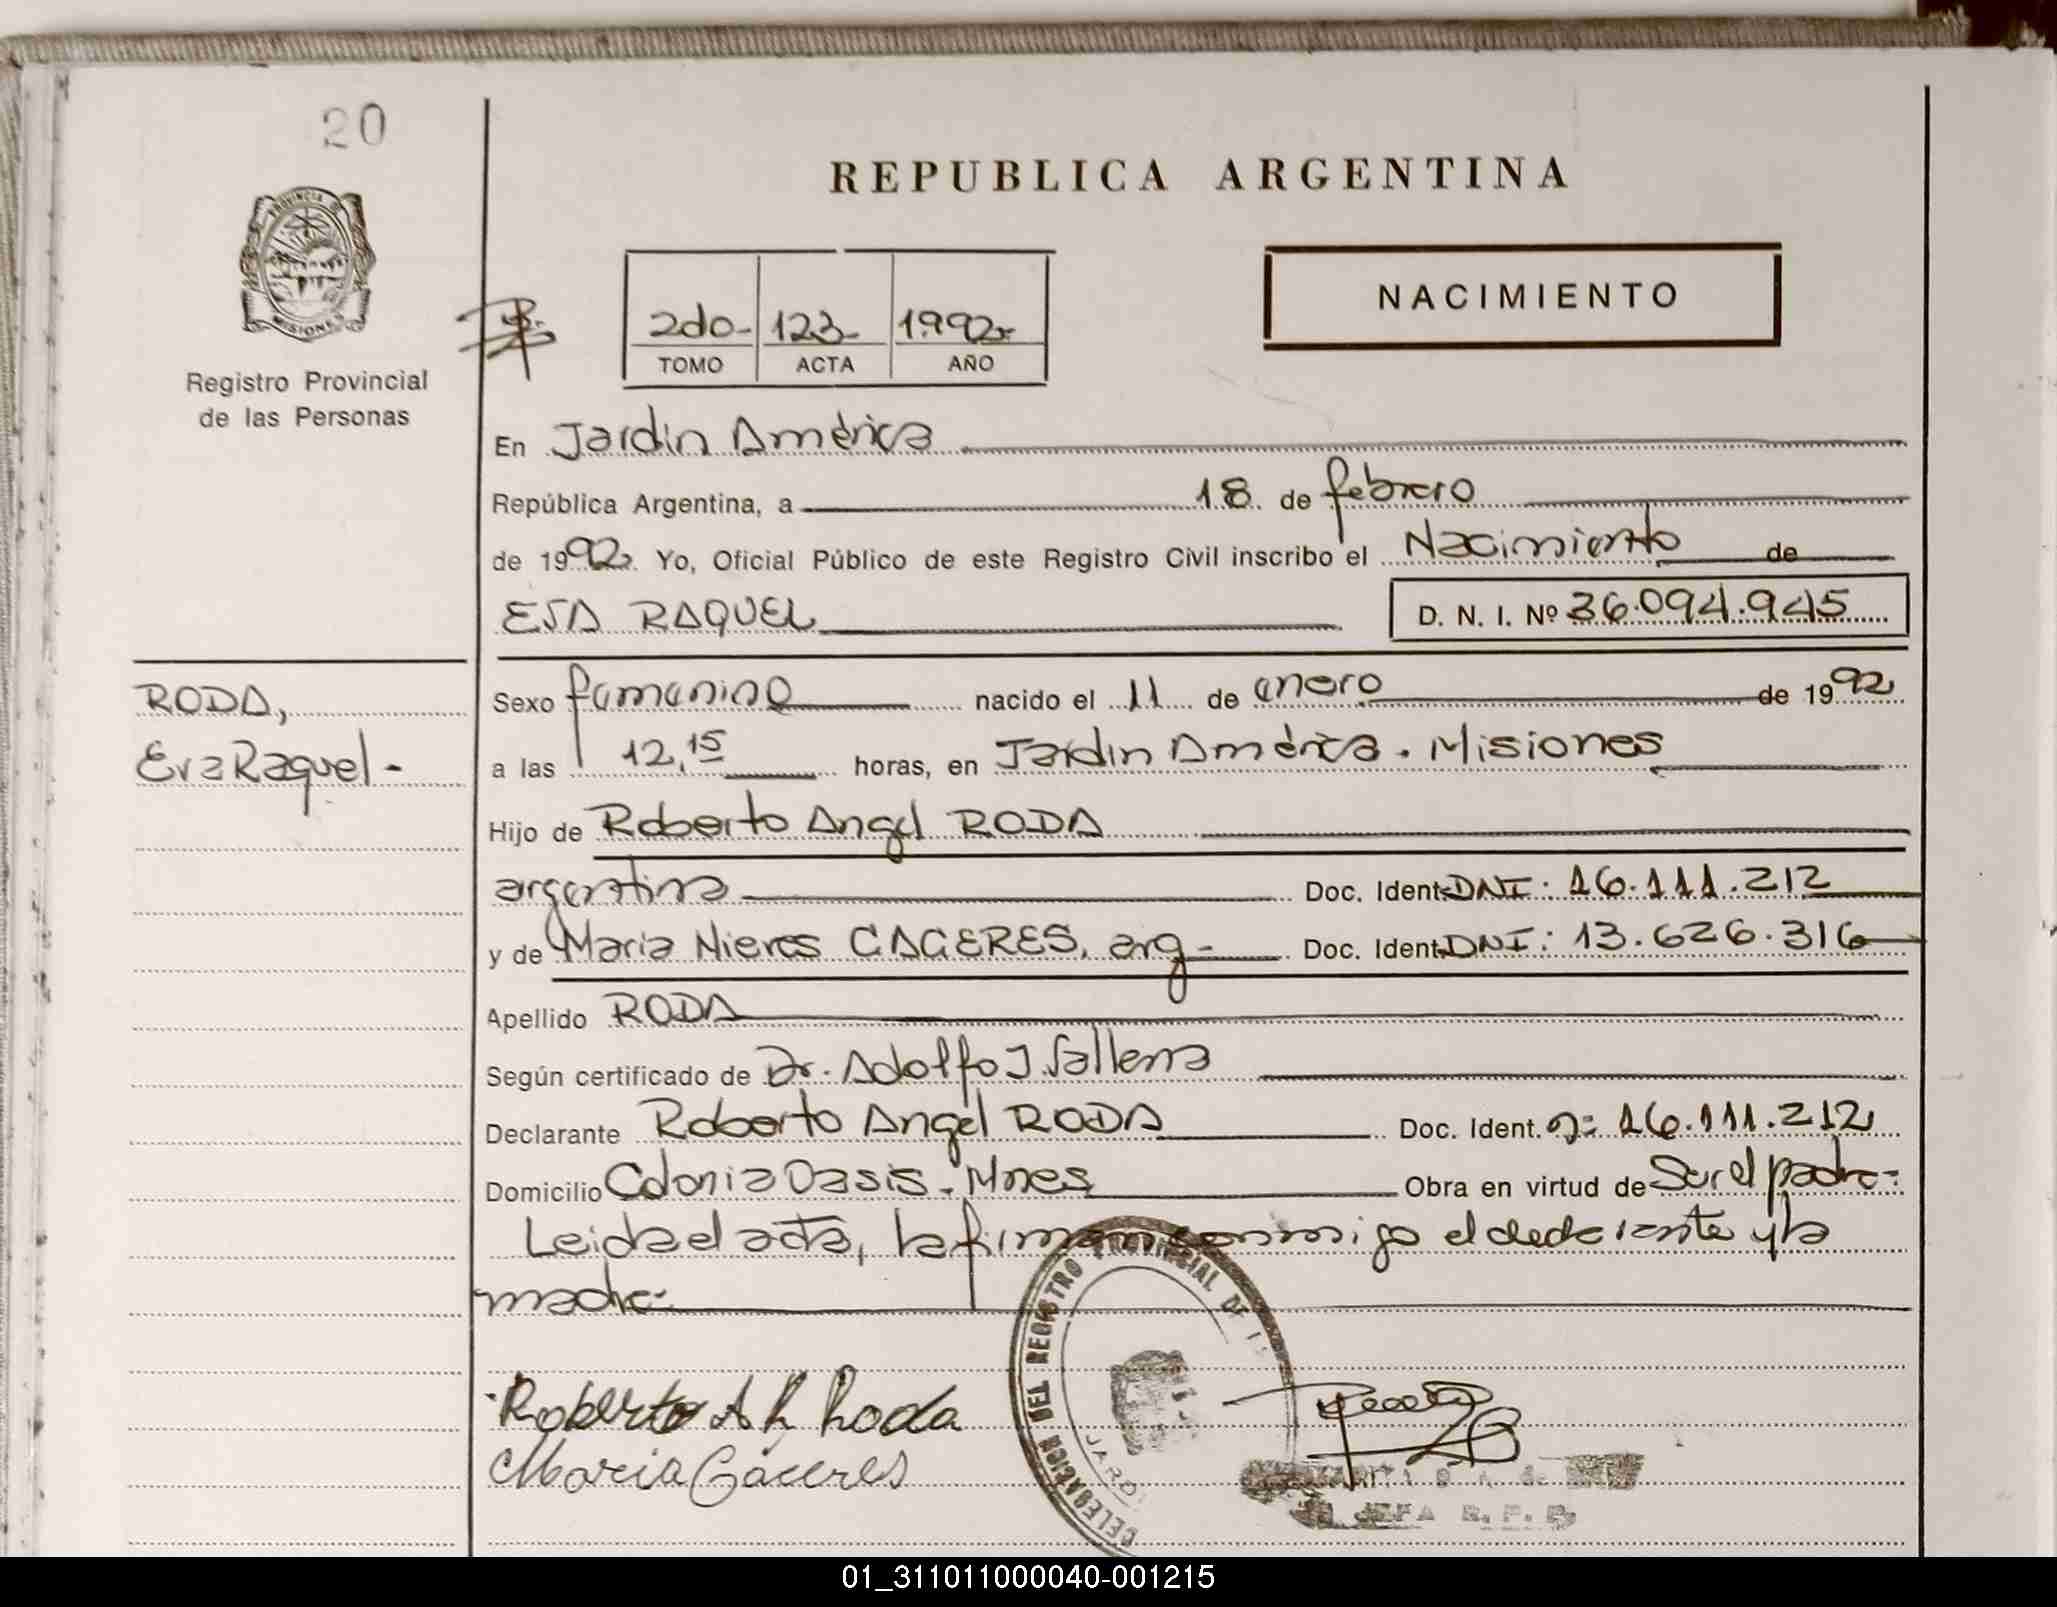 20
PROVINCIA DE
MISIONES
Registro Provincial
de las Personas
REPUBLICA ARGENTINA
NACIMIENTO
2do- 123- 1992-
TOMO ACTA AÑO
En Jardin América
República Argentina, a 18 de febrero
de 1992. Yo, Oficial Público de este Registro Civil inscribo el Nacimiento de
EVA RAQUEL D. N. I. Nº 36.094.945
RODA,
Eva Raquel-
Sexo femenino nacido el 11 de enero de 1992
a las 12,15 horas, en Jardin América. Misiones
Hijo de Roberto Angel RODA
argentina Doc. Ident. DNI: 16.111.212
y de Maria Nieves CACERES, arg- Doc. Ident. DNI: 13.626.316
Apellido RODA
Según certificado de Dr. Adolfo J
Declarante Roberto Angel RODA Doc. Ident. 16.111.212
Domicilio Colonia Oasis. Mnes Obra en virtud de Ser el padre-
Leida el acta, la firman conmigo el declarante y la
madre-
Roberto A R Roda
Maria Cáceres
DELEGACION DEL REGISTRO PROVINCIAL DE
JARDI
JEFA R. P. P.
01_311011000040-001215